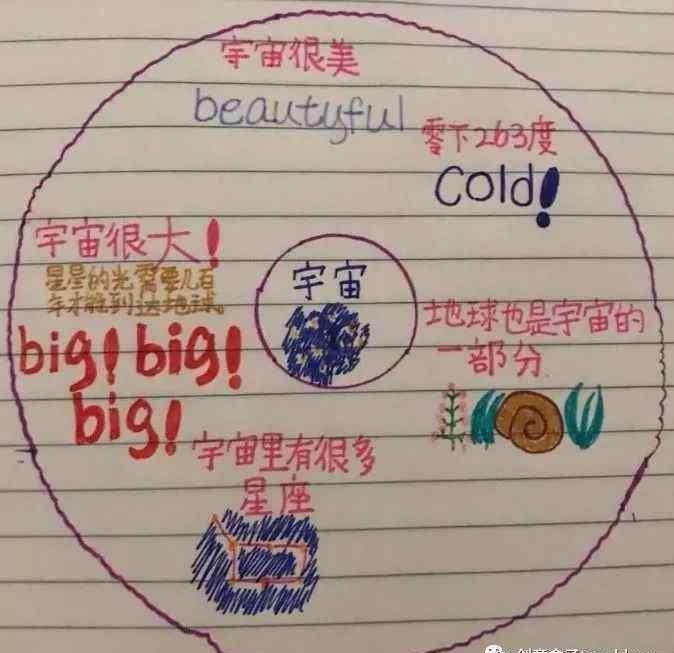 宇宙很美
beautyful
零下263度
cold!
宇宙很大!
星星的光需要几百
年才能到达地球。
big! big!
big!
宇宙
地球也是宇宙的
一部分
宇宙里有很多
星座